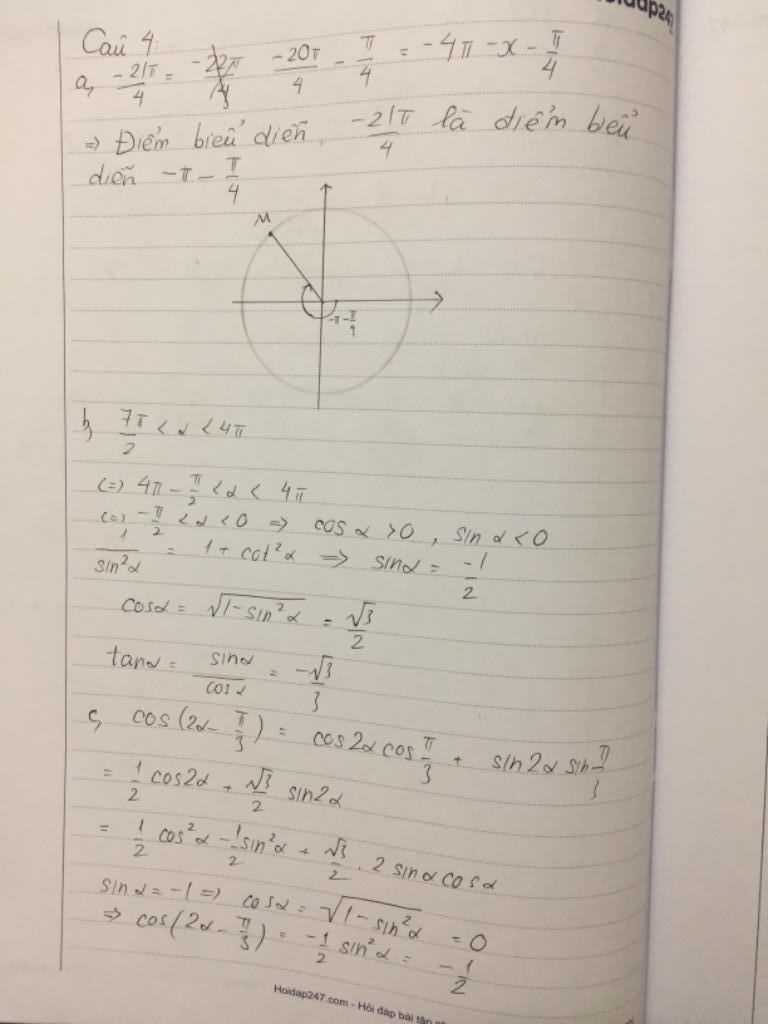 Hoidap247
Câu 4:
a, -21π/4 = -22π/4 -20π/4 - π/4 = -4π - x - π/4
=> Điểm biểu diễn -21π/4 là điểm biểu
diễn -π - π/4
M
-π - π/4
b, 7π/2 < α < 4π
(=) 4π - π/2 < α < 4π
(=) -π/2 < α < 0 => cos α > 0, sin α < 0
1/sin²α = 1 + cot²α => sinα = -1/2
cosα = √(1-sin²α) = √3/2
tanα = sinα/cosα = -√3/3
c, cos(2α - π/3) = cos2α cos π/3 + sin2α sin π/3
= 1/2 cos2α + √3/2 sin2α
= 1/2 cos²α - 1/2 sin²α + √3/2 . 2 sinα cosα
sinα = -1 => cosα = √(1-sin²α) = 0
=> cos(2α - π/3) = -1/2 sin²α = -1/2
Hoidap247.com - Hỏi đáp bài tập